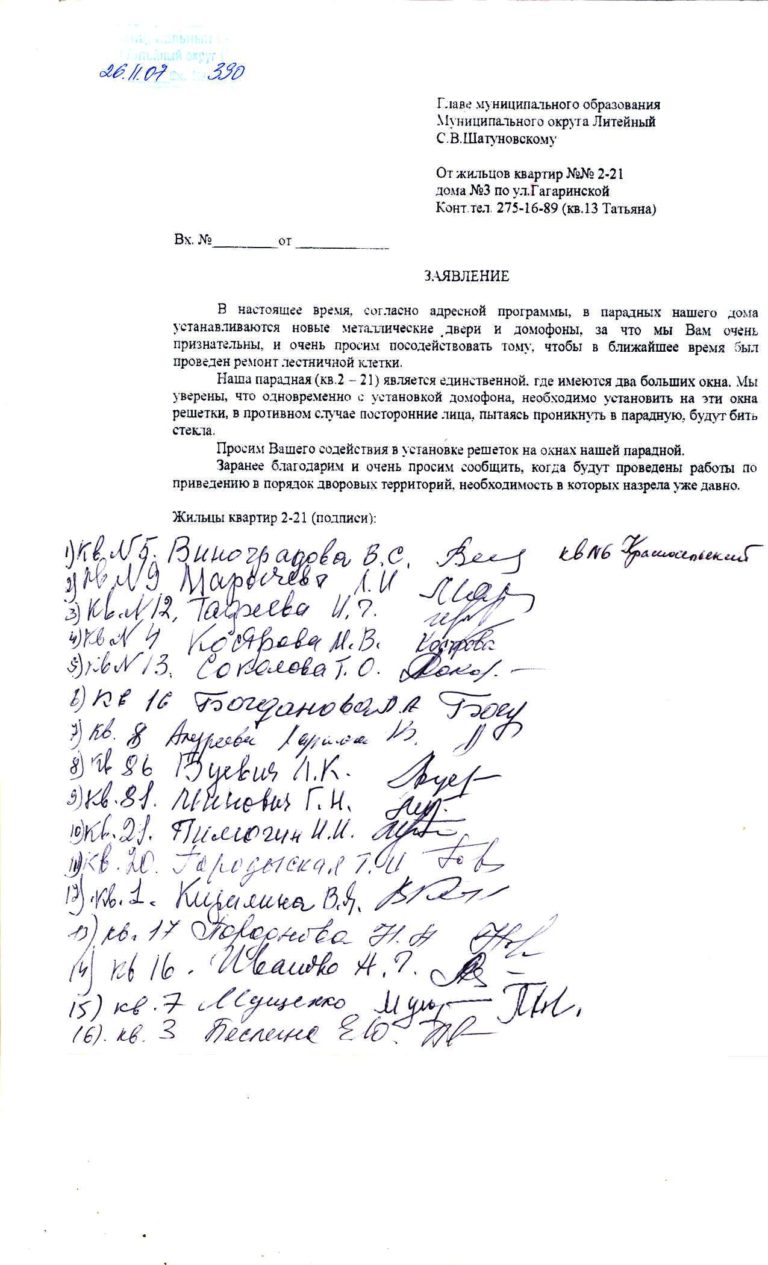 26.11.07 390
Главе муниципального образования
Муниципального округа Литейный
С.В.Шатуновскому
От жильцов квартир №№ 2-21
дома №3 по ул.Гагаринской
Конт.тел. 275-16-89 (кв.13 Татьяна)
Вх. №_________от _____________
ЗАЯВЛЕНИЕ
В настоящее время, согласно адресной программы, в парадных нашего дома
устанавливаются новые металлические двери и домофоны, за что мы Вам очень
признательны, и очень просим посодействовать тому, чтобы в ближайшее время был
проведен ремонт лестничной клетки.
Наша парадная (кв.2 – 21) является единственной, где имеются два больших окна. Мы
уверены, что одновременно с установкой домофона, необходимо установить на эти окна
решетки, в противном случае посторонние лица, пытаясь проникнуть в парадную, будут бить
стекла.
Просим Вашего содействия в установке решеток на окнах нашей парадной.
Заранее благодарим и очень просим сообщить, когда будут проведены работы по
приведению в порядок дворовых территорий, необходимость в которых назрела уже давно.
Жильцы квартир 2-21 (подписи):
1) Кв. N 5. Виноградова В.С. кв N6
2) Кв N 9
3) Кв. N 12,
4) Кв N 4 Кострова М.В. Кострова
5) кв N 13. Соколова Т.О.
6) Кв 16 Богданова
7) Кв. 8 Андреева
8) Кв 8б Вуевич Л.К.
9) Кв. 81. Минович Г.Н.
10) Кв. 21. Пилюгин И.И.
11) Кв. 20. Городыская Т.И
12) Кв. 1. В.Я.
13) кв. 17 Н.А
14) кв 16.
15) кв. 7 Мущенко
16). кв. 3 Е.Ю.